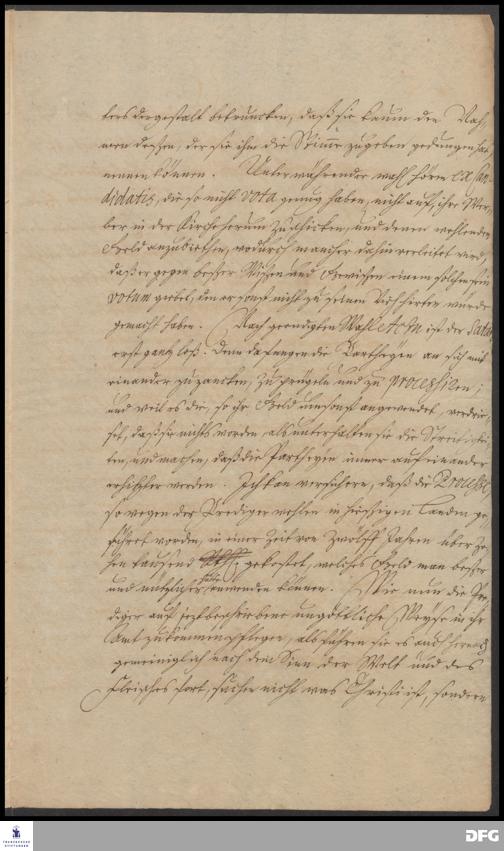 ters dergestalt betruncken, daß sie kaum den Nah-
men dessen, der sie ihm die Stimme zugeben gedungen hat
nennen können. Unter währender wahl hören ea Can-
didatis, die so nicht vota genug haben, nicht auf, ihre Wer-
ber in der Kirche herum zu schicken, und denen wehlenden
Geld anzubiethen, wodurch mancher dahin verleitet wird,
daß er gegen besser Wißen und Gewissen einem solchen sein
votum giebet, den er sonst nicht zu seinem Viehhirten würde
gemacht haben. Nach geendigten Wahl Actu ist der Satan
erst gantz loß. Denn da fangen die Partheyen an sich mit
einander zu zancken, zu prügeln und zu processiren;
und weil es die, so ihr Geld umsonst angewendet, verdrie-
ßet, daß sie nichts worden, als unterhalten sie die Streitig-
ten, und machen, daß die Partheyen immer auf einander
erhitzter werden. Ich kan versichern, daß die Processe,
so wegen der Prediger wahlen in hiesigen Landen ge-
führet worden, in einer Zeit von zwölff Jahren über Ze-
hen tausend gekostet, welches Geld man besser
und nützlicher hätte anwenden können. Wie nun die Pre-
diger auf jetzt beschriebene ungöttliche Weyse in ihr
Amt zukommen pflegen, also führen sie es auch hernach
gemeiniglich nach dem Sinn der Welt und des
Fleisches fort, suchen nicht was Christi ist, sondern
FRANCKESCHE STIFTUNGEN
DFG